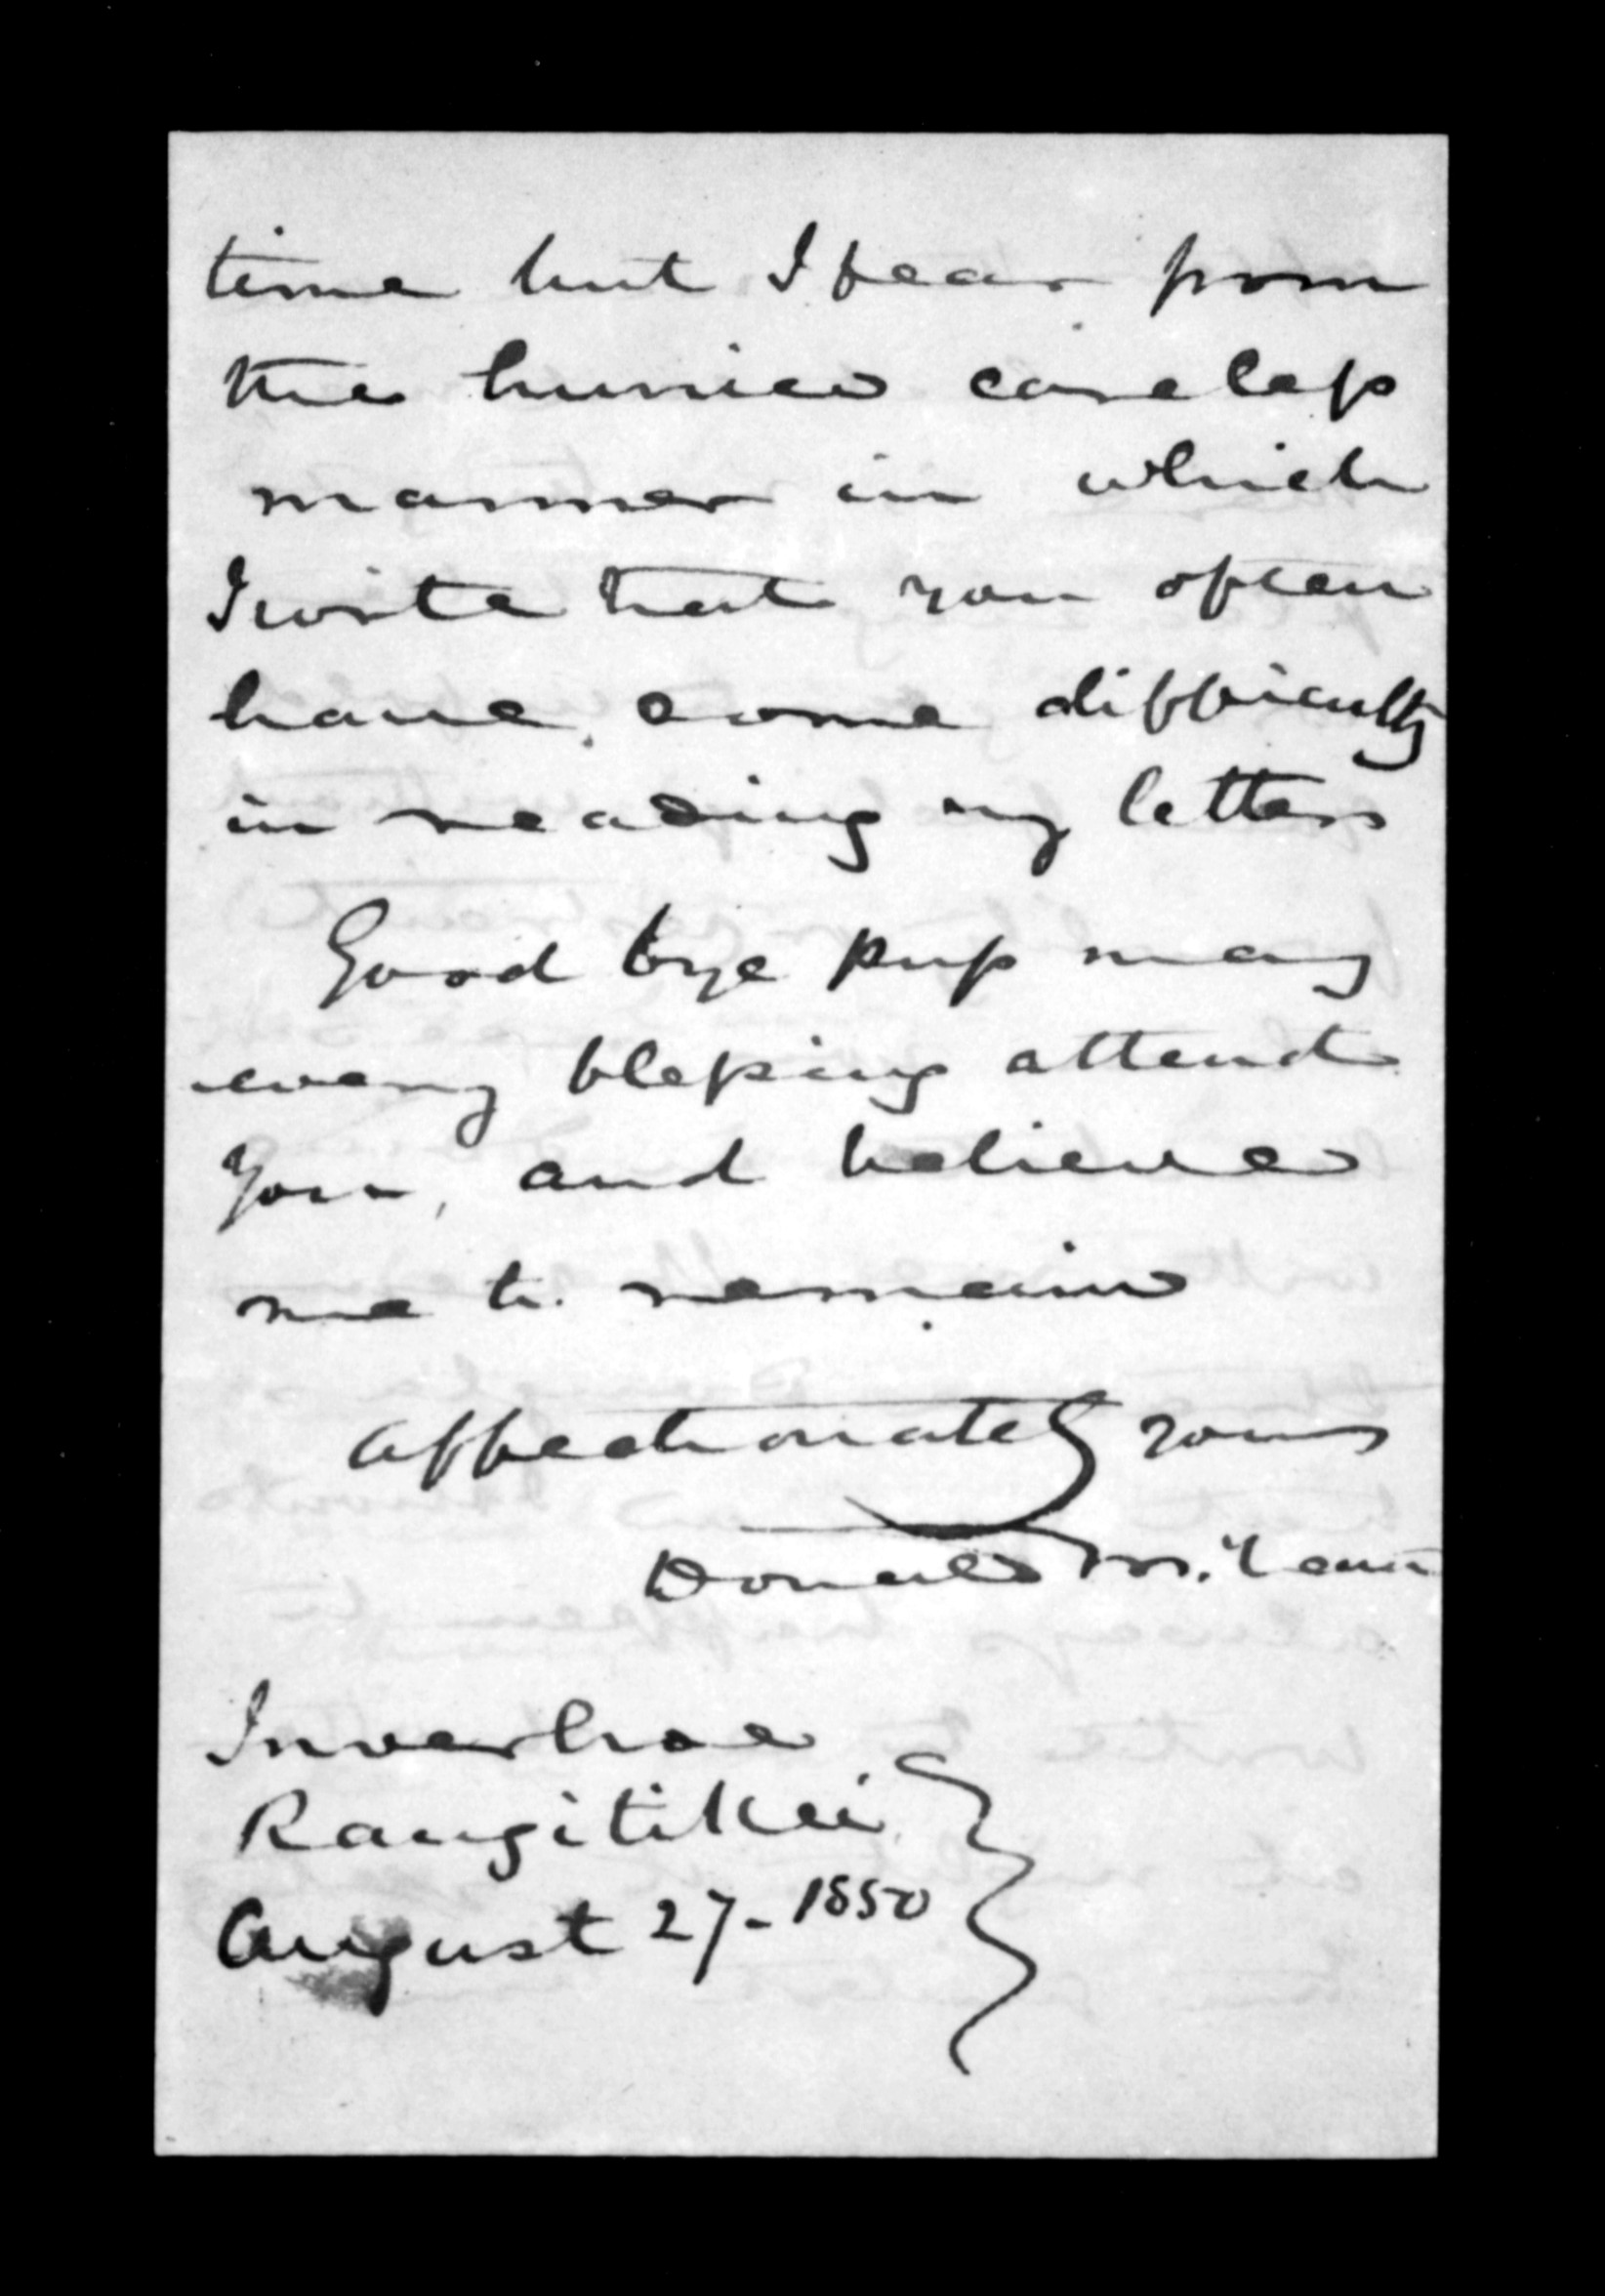 time but I fear from
the hurried careless
manner in which
I write that you often
have some difficulty
in reading my letters
Good bye pup may
every blessing attend
you, and believe
me to remain
affectionately yours
Donald McLean
Rangitikei
August 27- 1850